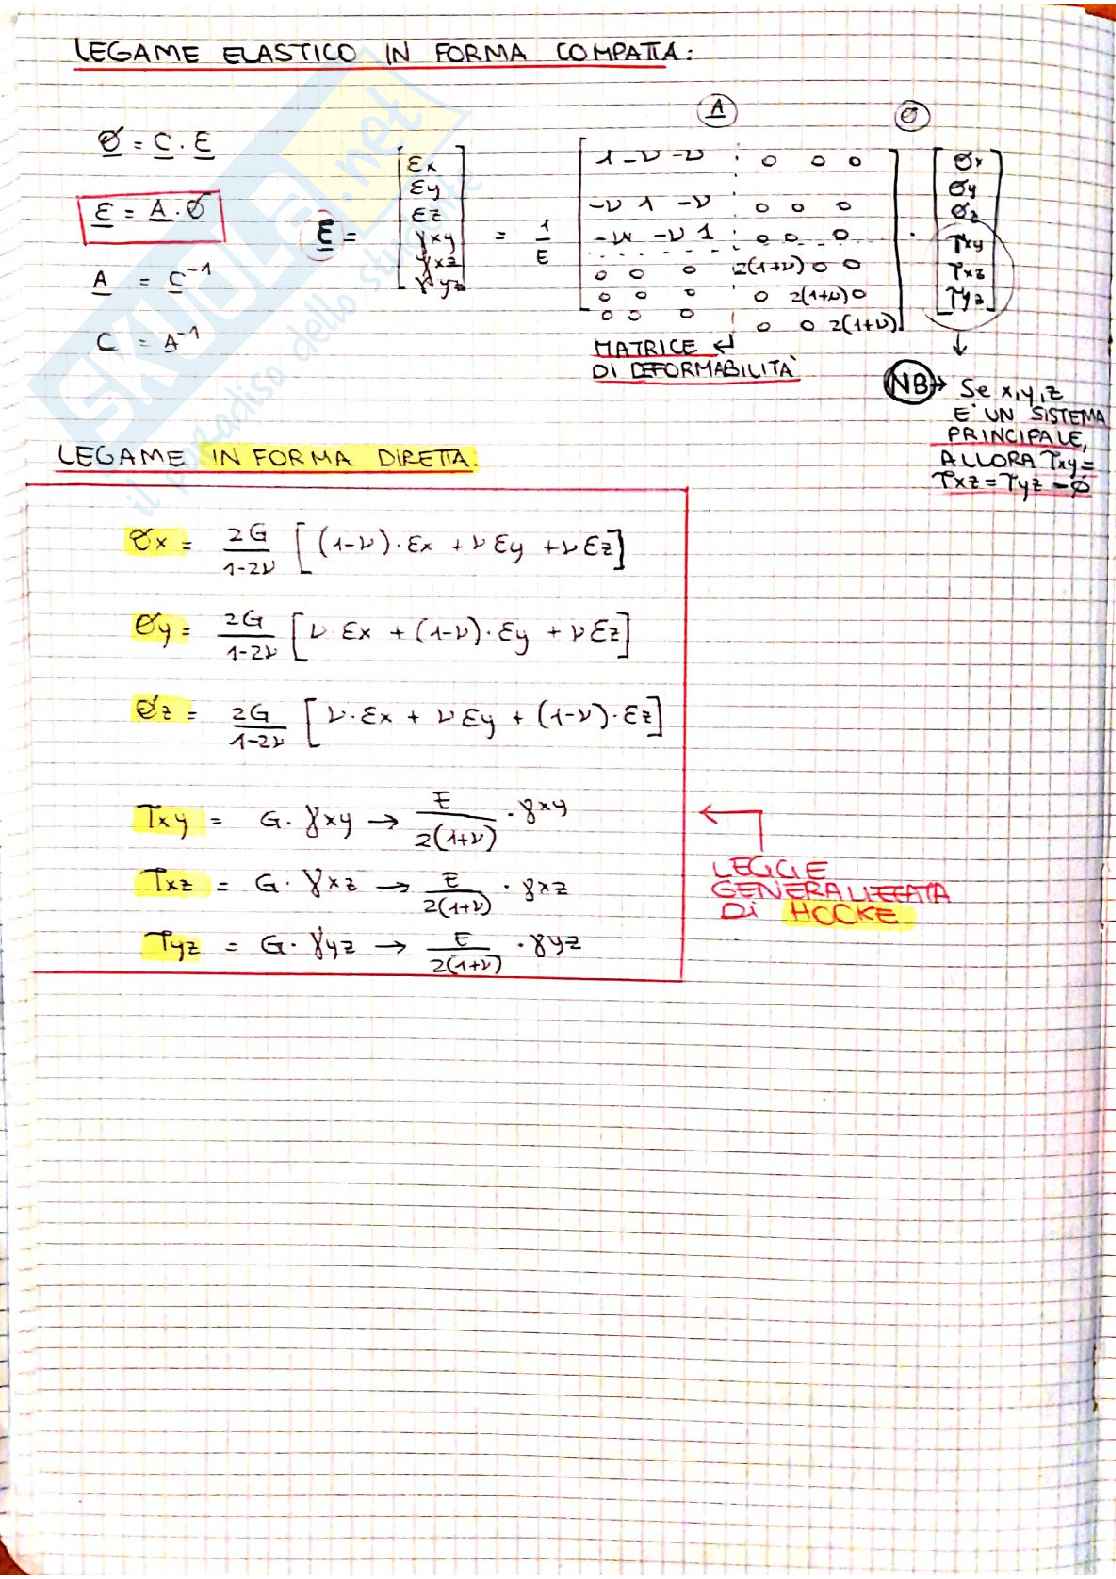 LEGAME ELASTICO IN FORMA COMPATTA:
σ = C · ε
ε = A · σ
A = C⁻¹
C = A⁻¹
ε = [εx εy εz γxy γxz γyz] = 1/E
A
1 -ν -ν 0 0 0
-ν 1 -ν 0 0 0
-ν -ν 1 0 0 0
0 0 0 2(1+ν) 0 0
0 0 0 0 2(1+ν) 0
0 0 0 0 0 2(1+ν)
·
σ
σx
σy
σz
τxy
τxz
τyz
MATRICE ↵
DI DEFORMABILITÀ
NB → Se x,y,z
E' UN SISTEMA
PRINCIPALE,
ALLORA τxy=
τxz=τyz=0
LEGAME IN FORMA DIRETTA:
σx = 2G/1-2ν [(1-ν)·εx + νεy + νεz]
σy = 2G/1-2ν [ν εx + (1-ν)·εy + νεz]
σz = 2G/1-2ν [ν·εx + νεy + (1-ν)·εz]
τxy = G·γxy → E/2(1+ν) · γxy
τxz = G·γxz → E/2(1+ν) · γxz
τyz = G·γyz → E/2(1+ν) · γyz
LEGGE
GENERALIZZATA
Di HOOKE
SKUOLA.net
il paradiso dello studente